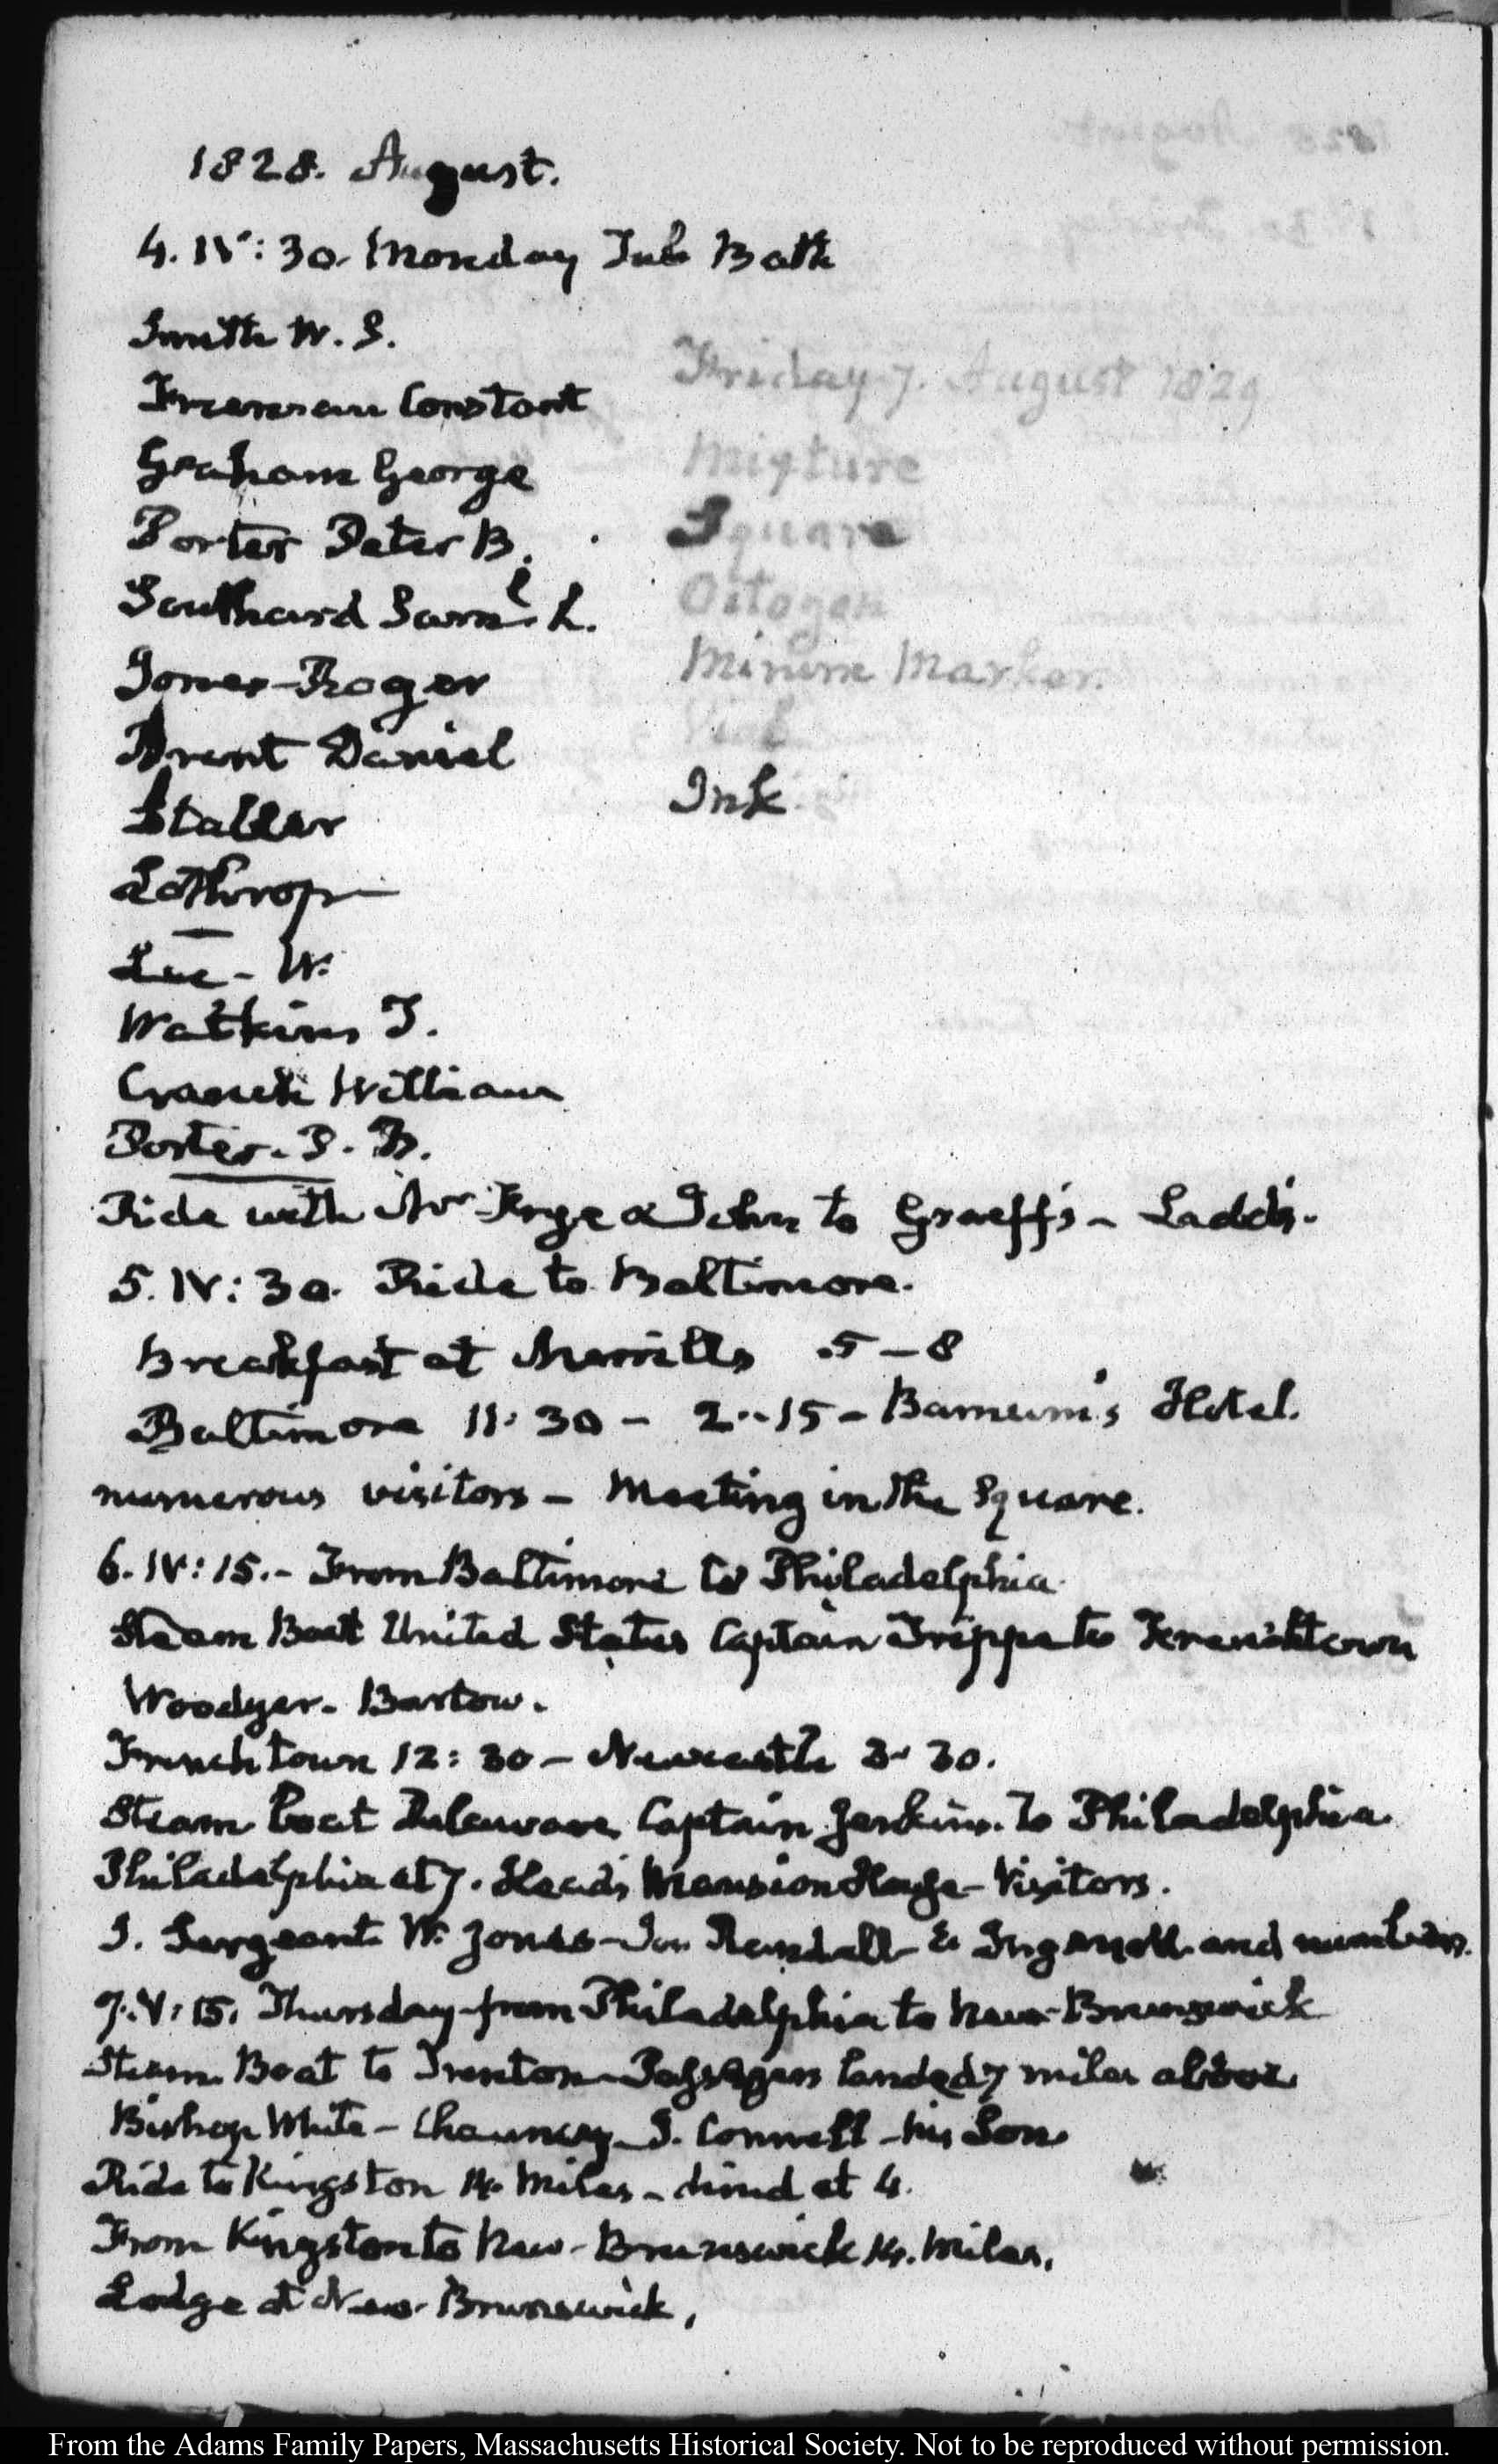 1828. August.
4. IV: 30. Monday Tub Bath
Smith W. S.
Freeman Constant
Graham George
Porter Peter B.
Southard Saml. L.
Jones Roger
Brent Daniel
Lothrop
Lee - W.
Watkins T.
Cranch William
Porter. P. B.
Friday 7. August 1829
Mixture
Square
Octogon
Minim Marker.
Vial
Ink
Ride with Mr Frye & John to Graeff's - Ladd's.
5. IV: 30. Ride to Baltimore.
Breakfast at Merrill's 5 - 8
Baltimore 11. 30 - 2..15 - Barneum's Hotel.
numerous visitors - Meeting in the Square.
6. IV: 15. - From Baltimore to Philadelphia
Steam Boat United States Captain Trippe to Frenchtown
Woodyer. Bartow.
Frenchtown 12: 30 - Newcastle 3. 30.
Steam boat Delaware, Captain Jenkins. To Philadelphia.
Philadelphia at 7. Head's Mansion House - Visitors.
J. Sergeant W. Jones - Jon. Ingersoll and numbers.
7. V: 15. Thursday from Philadelphia to New-Brunswick
Steam Boat to Trenton - Passengers landed 7 miles above
Bishop White - Chauncey - J. Connell - his Son
Ride to Kingston 14. Miles - dined at 4.
From Kingston to New-Brunswick 14. Miles.
Lodge at New-Brunswick,
From the Adams Family Papers, Massachusetts Historical Society. Not to be reproduced without permission.